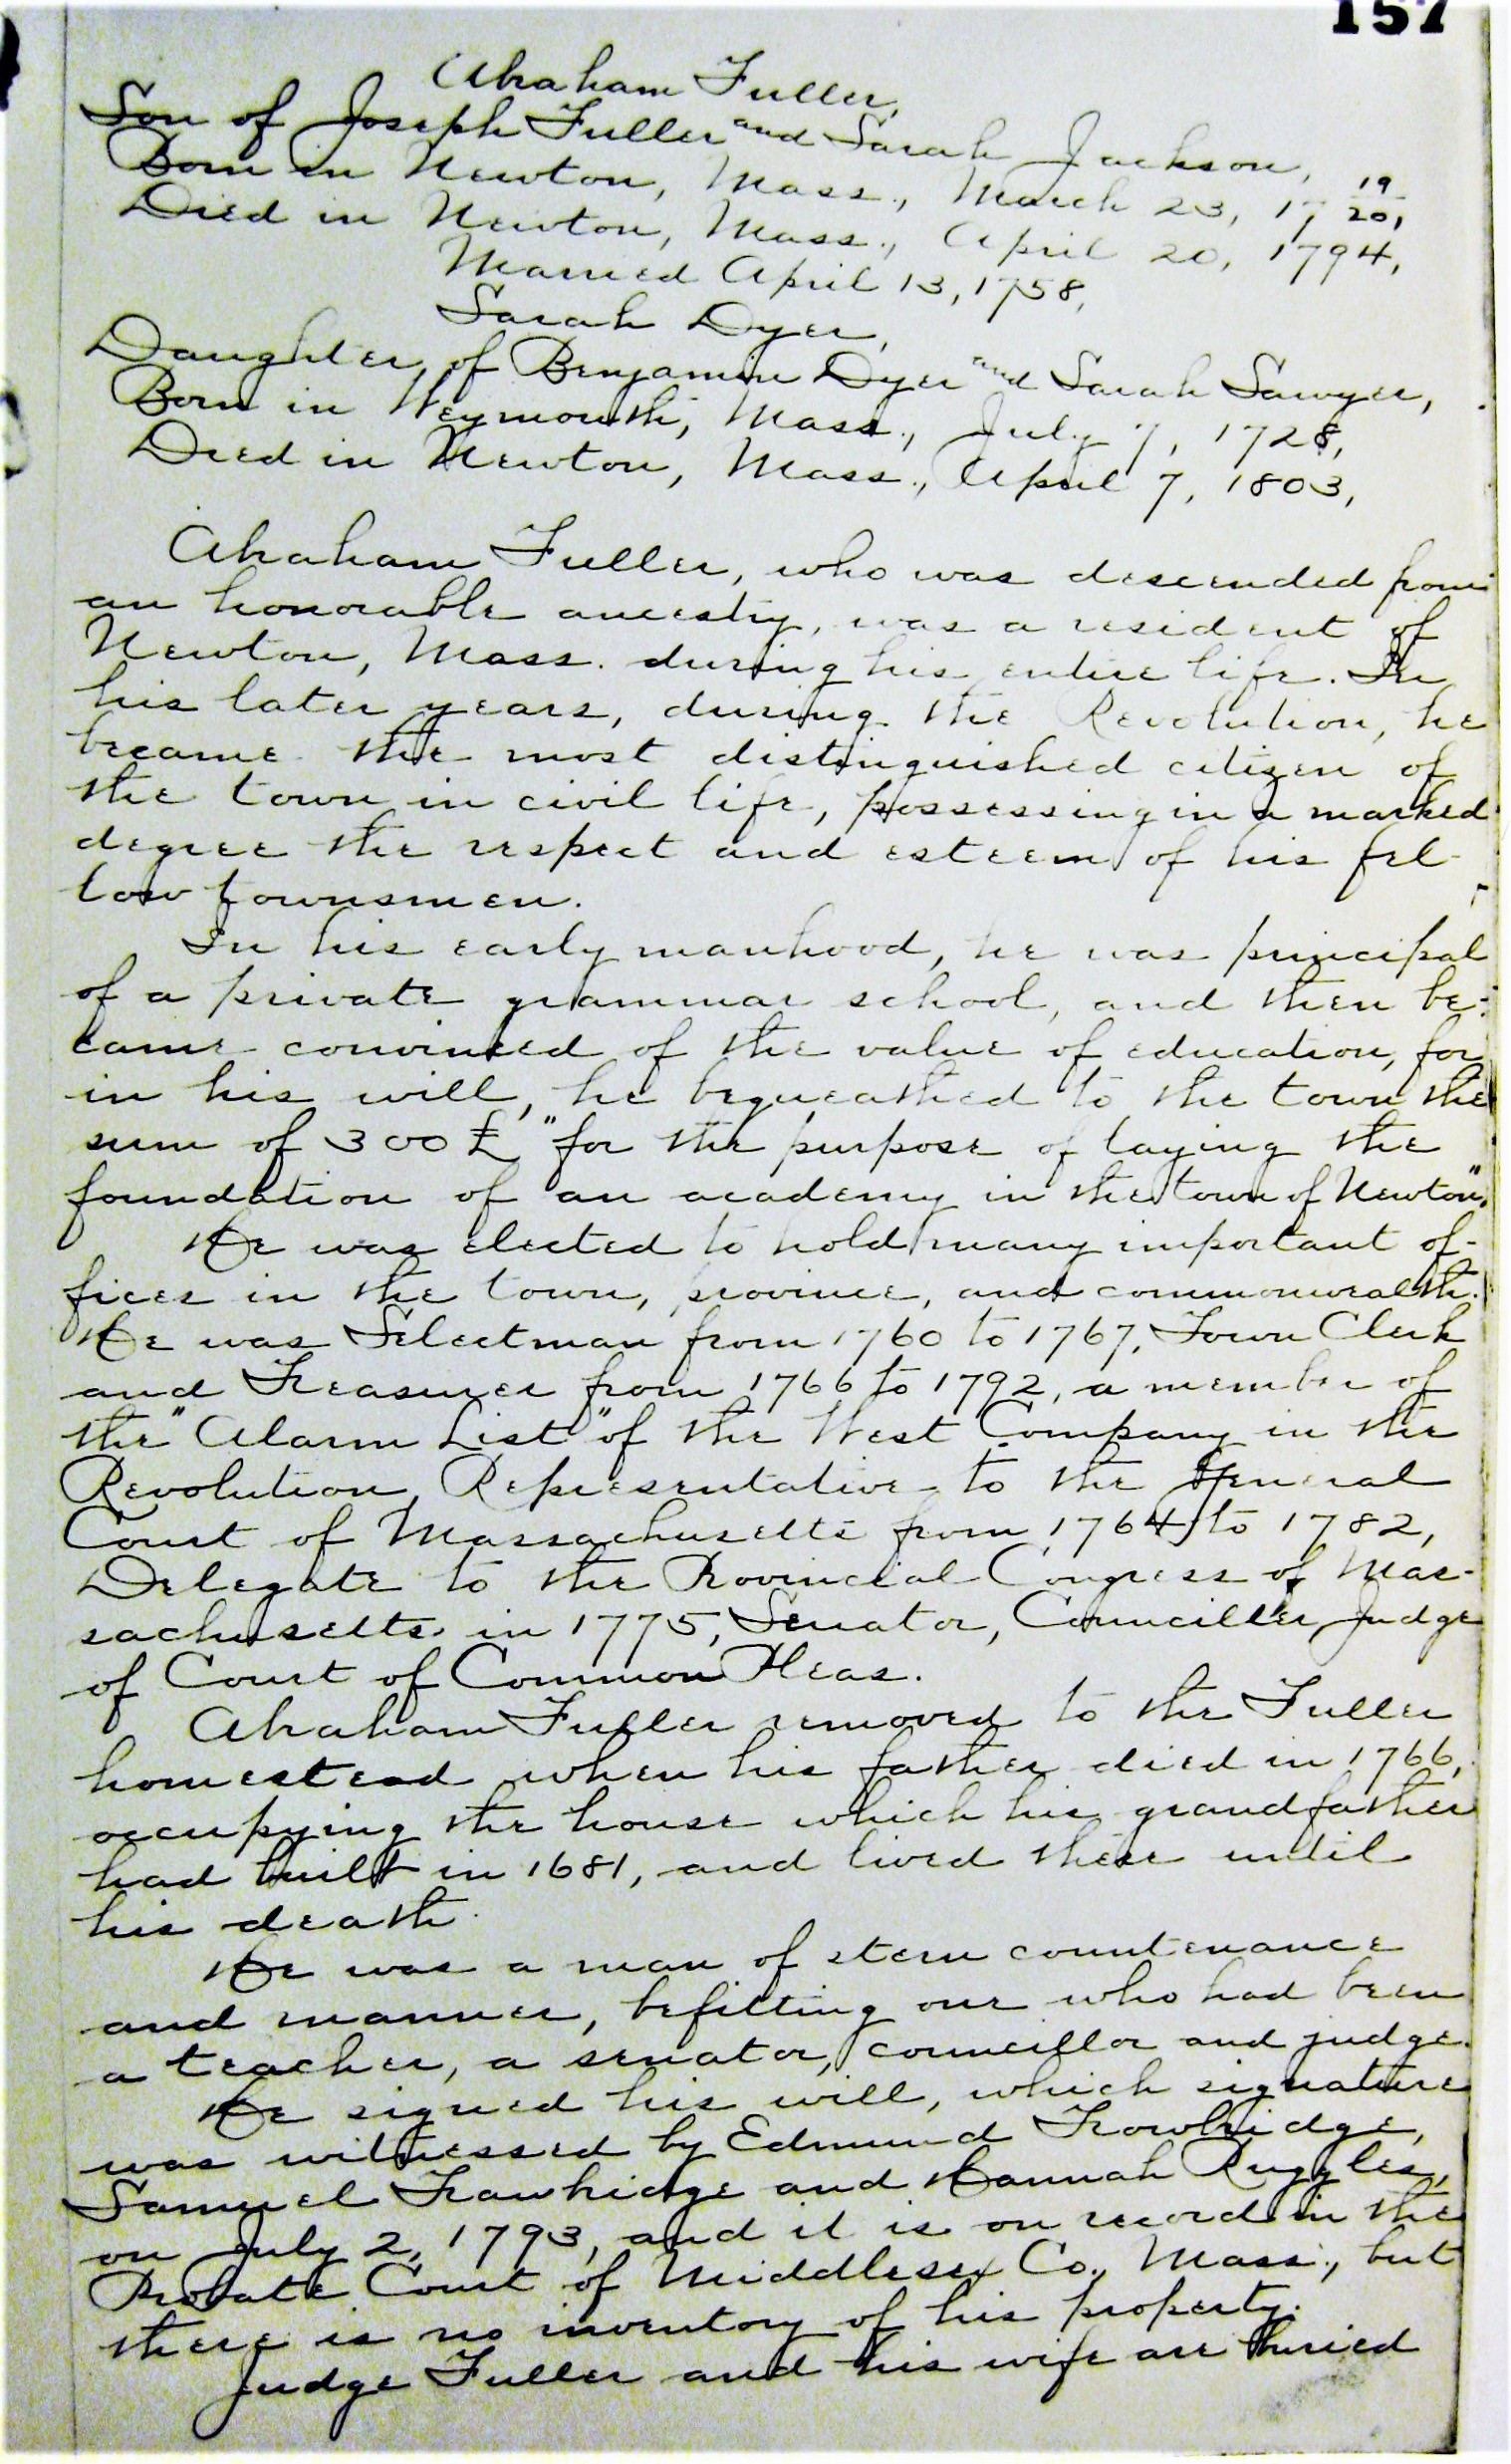 157
Abraham Fuller,
Son of Joseph Fuller and Sarah Jackson,
Born in Newton, Mass., March 23, 17 19/20,
Died in Newton, Mass., April 20, 1794,
Married April 13, 1758,
Sarah Dyer,
Daughter of Benjamin Dyer and Sarah Sawyer,
Born in Weymouth, Mass., July 7, 1728,
Died in Newton, Mass., April 7, 1803,
Abraham Fuller, who was descended from
an honorable ancestry, was a resident of
Newton, Mass. during his entire life. In
his later years, during the Revolution, he
became the most distinguished citizen of
the town in civil life, possessing in a marked
degree the respect and esteem of his fel-
low townsmen.
In his early manhood, he was principal
of a private grammar school, and then be-
came convinced of the value of education, for
in his will, he bequeathed to the town the
sum of 300 £ "for the purpose of laying the
foundation of an academy in the town of Newton".
He was elected to hold many important of-
fices in the town, province, and commonwealth.
He was Selectman from 1760 to 1767, Town Clerk
and Treasurer from 1766 to 1792, a member of
the "Alarm List" of the West Company in the
Revolution, Representative to the General
Court of Massachusetts from 1764 to 1782,
Delegate to the Provincial Congress of Mas-
sachusetts in 1775, Senator, Counciller, Judge
of Court of Common Pleas.
Abraham Fuller removed to the Fuller
homestead when his father died in 1766,
occupying the house which his grandfather
had built in 1681, and lived there until
his death.
He was a man of stern countenance
and manner, befitting one who had been
a teacher, a senator, councillor and judge.
He signed his will, which signature
was witnessed by Edmund Trowbridge,
Samuel Trowbridge and Hannah Ruggles,
on July 2, 1793, and it is on record in the
Probate Court of Middlesex Co., Mass., but
there is no inventory of his property.
Judge Fuller and his wife are buried